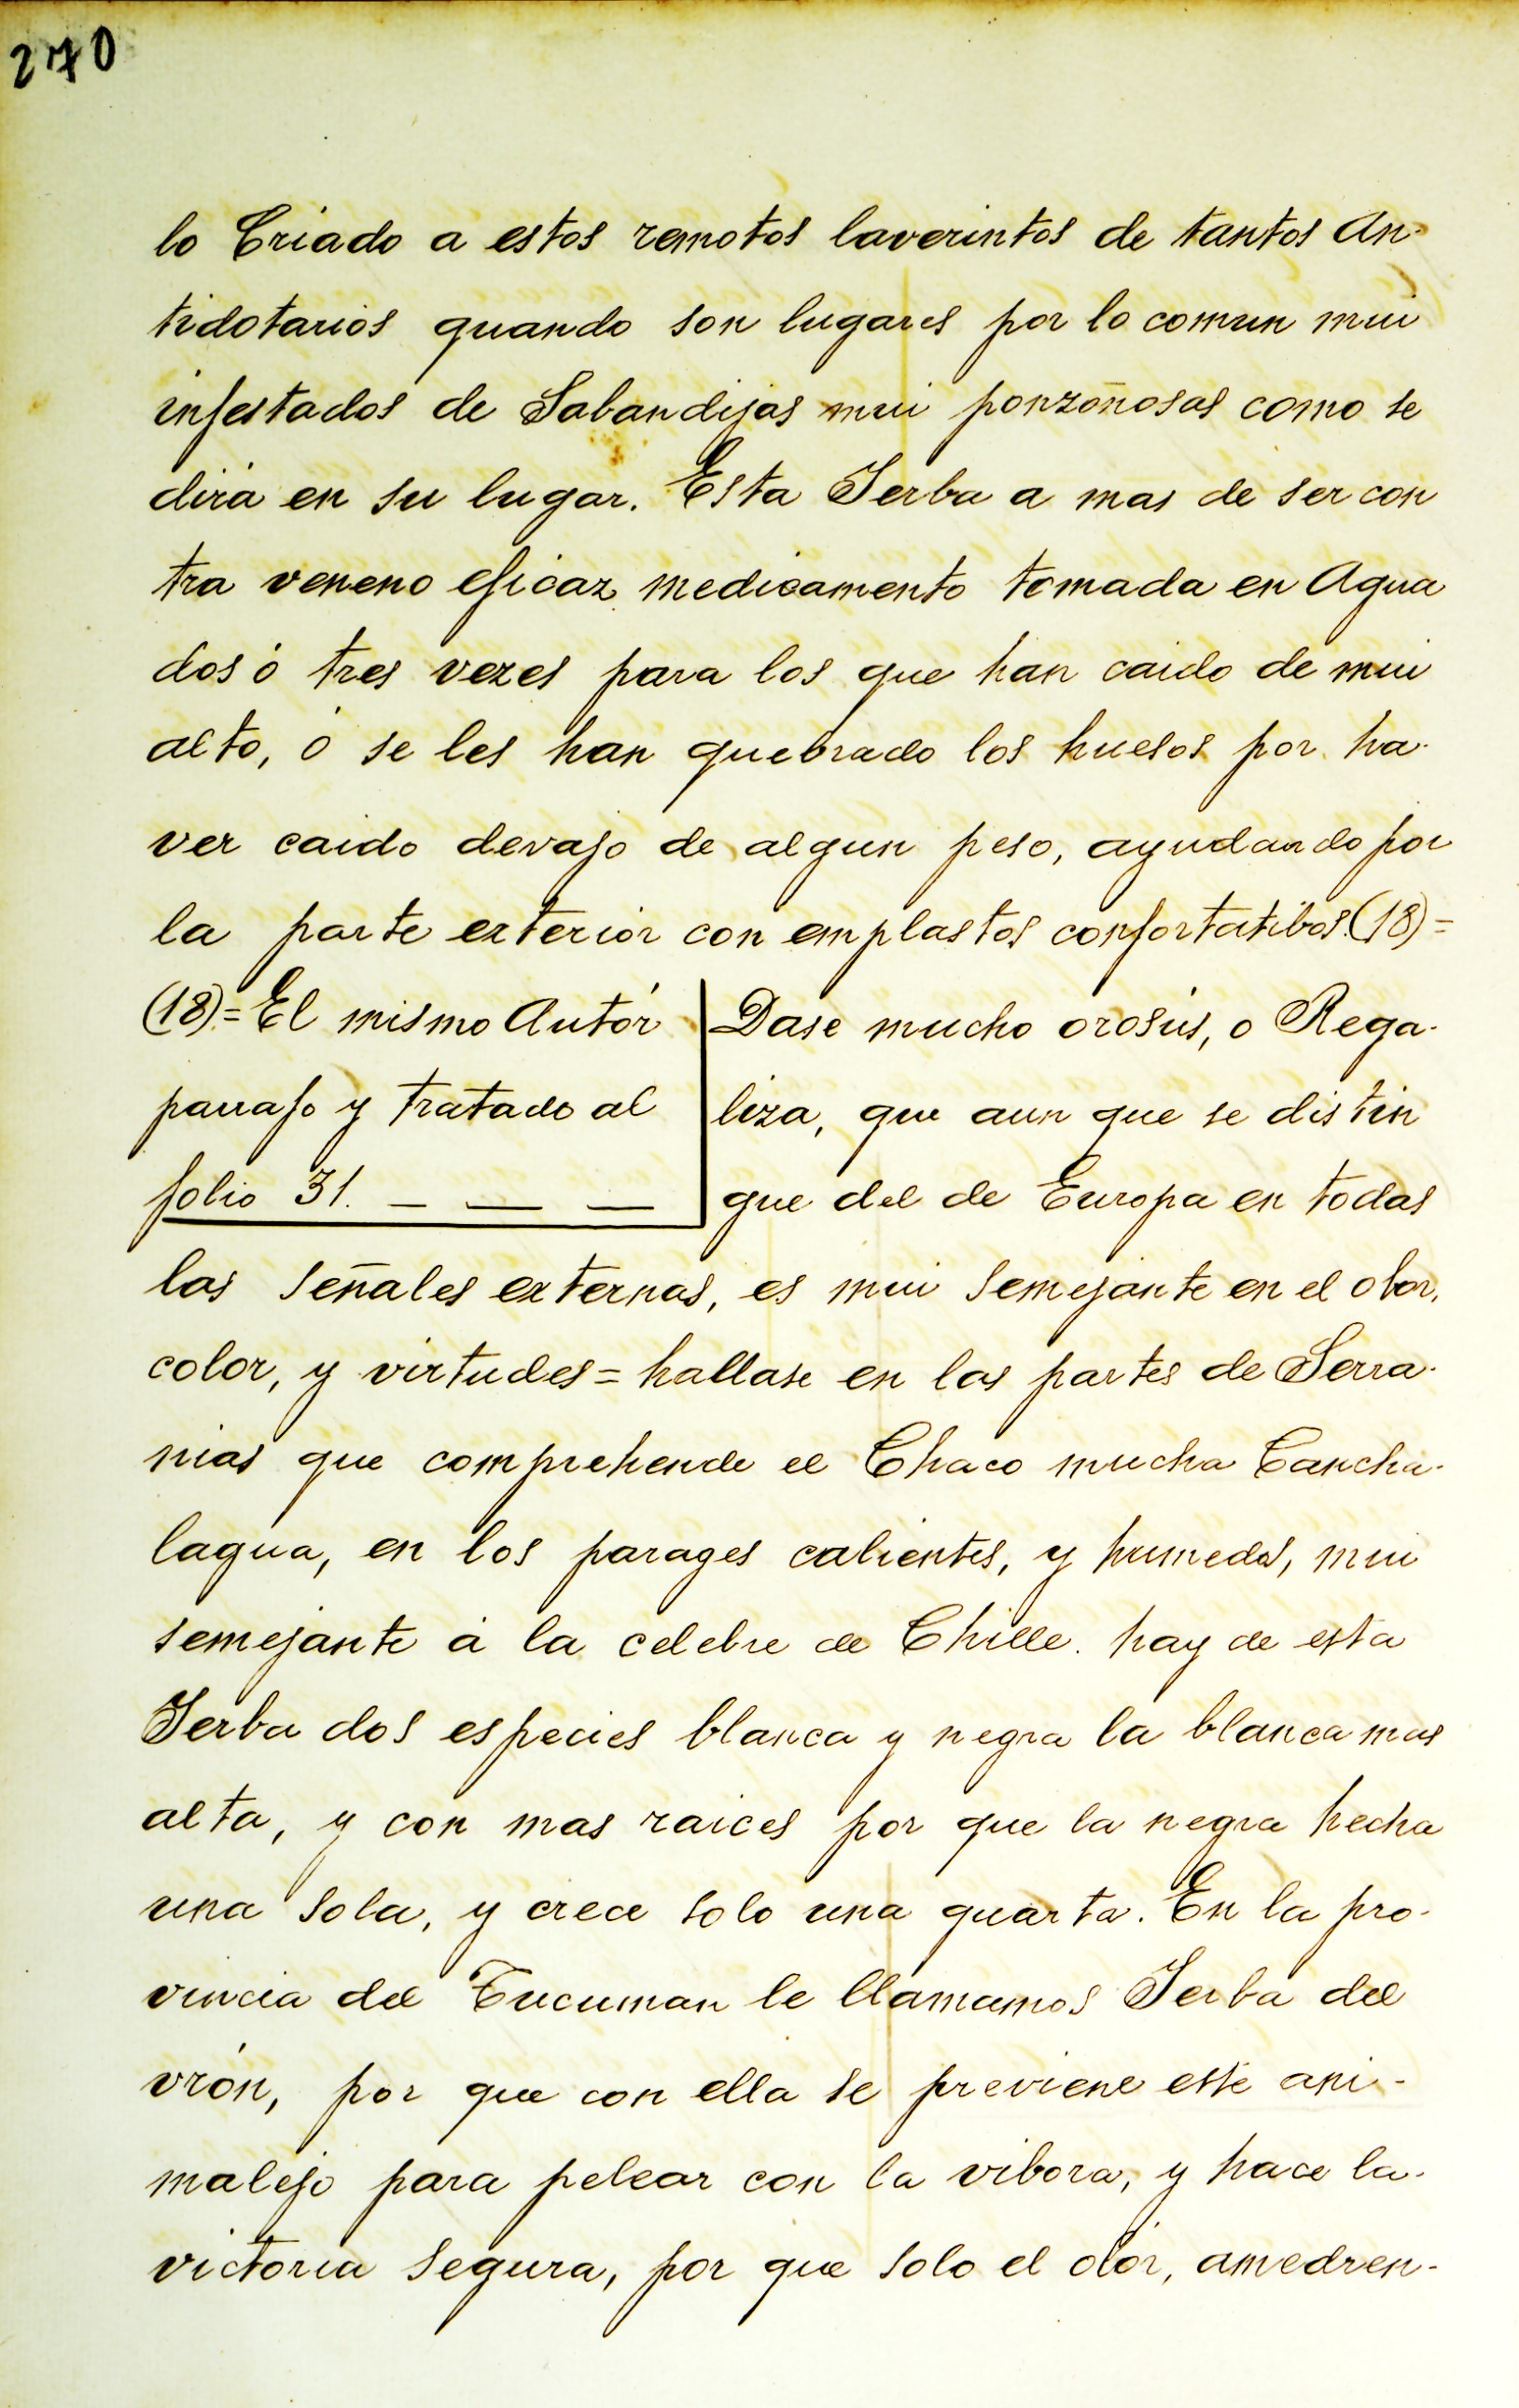 270
lo Criado a estos remotos laverintos de tantos An-
tidotarios quando son lugares por lo comun mui
infestados de Sabandijas mui ponzoñosas como se
dirá en su lugar. Esta Jerba a mas de ser con
tra veneno eficaz medicamento tomada en Agua
dos ó tres vezes para los que han caido de mui
alto, ó se les han quebrado los huesos por ha-
ver caido devajo de algun peso, ayudando por
la parte exterior con emplastos confortatibos.(18)=
(18)=El mismo Autór
parrafo y tratado al
folio 31. — — —
Dase mucho orosús, o Rega-
liza, que aun que se distin
gue del de Europa en todas
las señales externas, es mui semejante en el olor,
color, y virtudes=hallase en las partes de Serra-
nias que comprehende el Chaco mucha Cancha-
lagua, en los parages calientes, y humedos, mui
semejante á la celebre de Chille. hay de esta
Jerba dos especies blanca y negra la blanca mas
alta, y con mas raices por que la negra hecha
una sola, y crece solo una quarta. En la pro-
vincia del Tucuman le llamamos Jerba del
vrón, por que con ella se previene este ani-
malejo para pelear con la vibora, y hace la-
victoria segura, por que solo el olór, amedren-